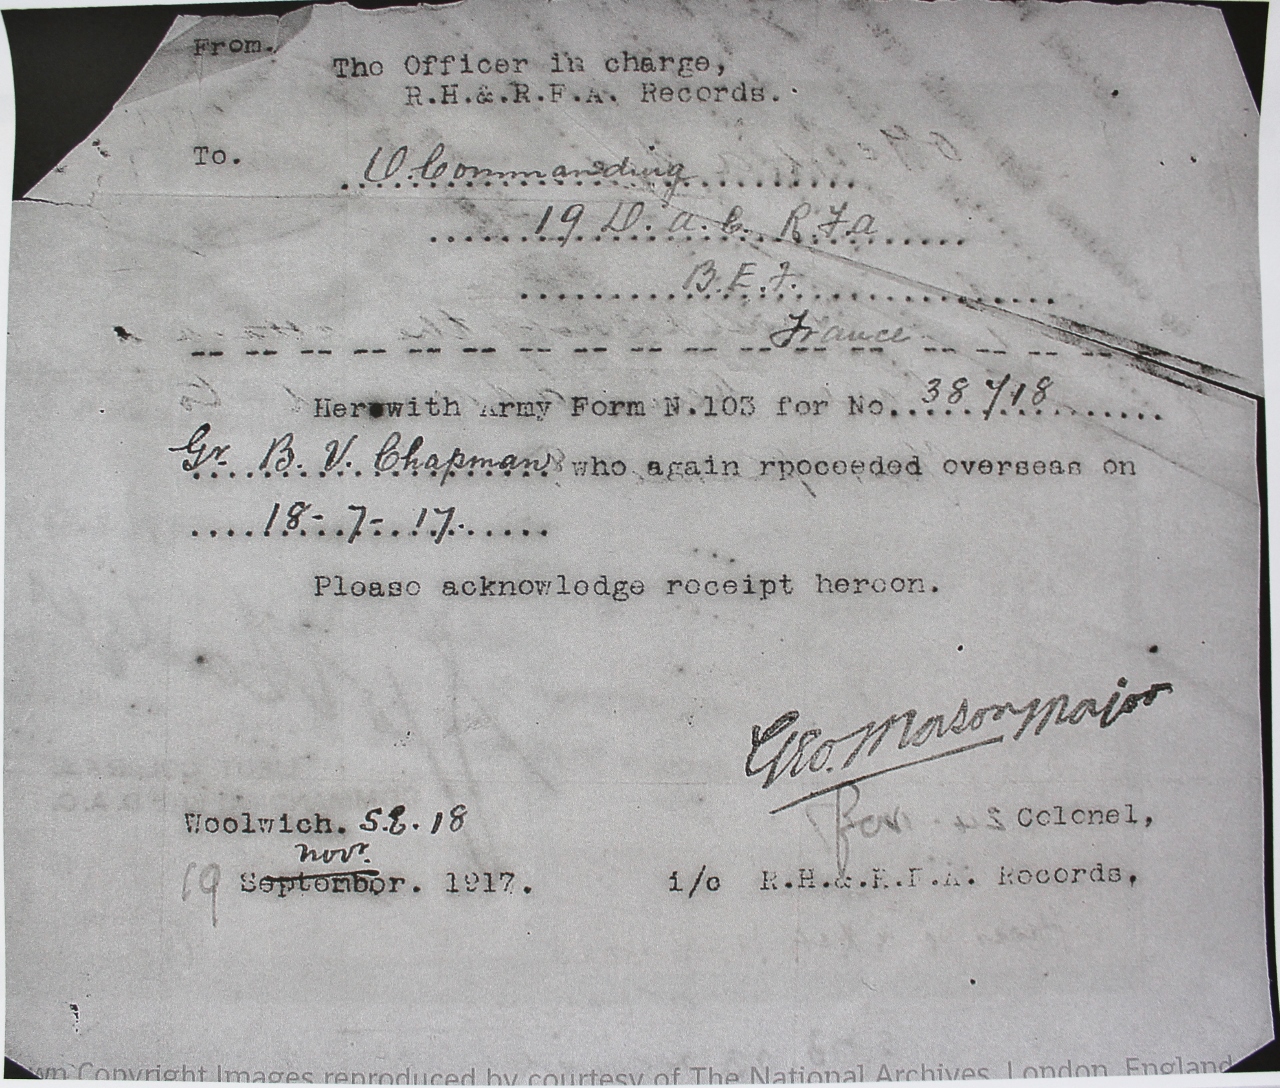 From.
The Officer in charge,
R.H.&.R.F.A. Records.
To.
O. Commanding
19 D. A. C. R.F.A
B.E.F.
France
Herewith Army Form N.103 for No. 38718
Gr. B. V. Chapman who again rpoceeded overseas on
18-7-17.
Please acknowledge receipt hereon.
Geo. Mason Major
Woolwich. S.E. 18
For Colonel,
Novr.
19 September. 1917.
i/c R.H.&.R.F.A. Records,
Copyright Images reproduced by courtesy of The National Archives, London, England